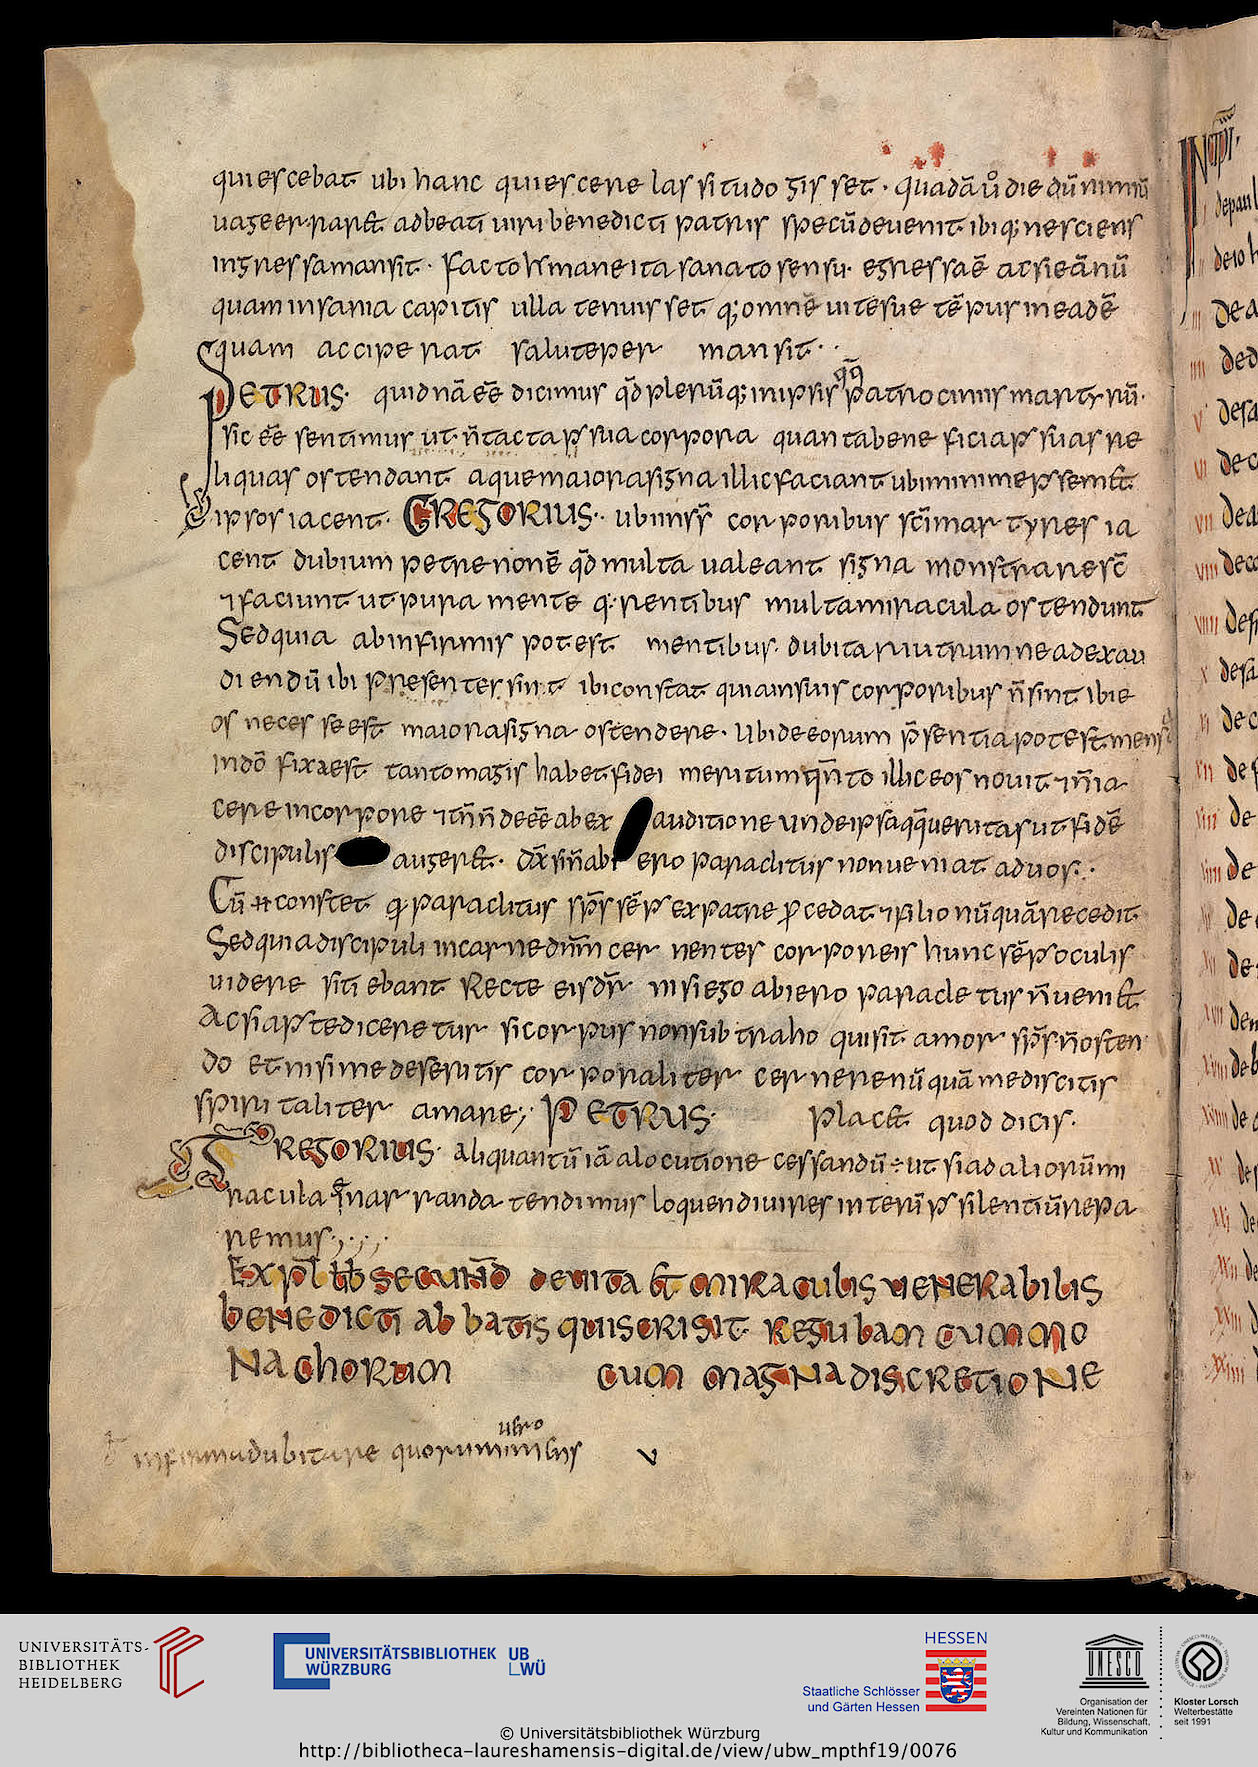 quiescebat ubi hanc quiescere lassitudo gisset · quadā ů die dū nimiū
uage erraret ad beati uiri benedicti patris specū deuenit ibiq; nesciens
ingressa mansit · facto h mane ita sanato sensu · egressa ē ac si eā nū
quam insania capitis ulla tenuisset q; omnē uitę suę tēpus in eadē
quam acceperat salute per mansit · ·
PETRUS · quidnā eē dicimus qđ plerūq; in ipsis patrociniis martyrū ·
qq̄
sic eē sentimus ut n̄ tacta p sua corpora quanta beneficia p suas re
liquias ostendant aque maiora signa illic faciant ubi minime p semet
ipsos iacent · GREGORIUS · ubi in suis corporibus sc̄i martyres ia
cent dubium petre non ē qđ multa ualeant signa monstrare sc̄
⁊ faciunt ut pura mente querentibus multa miracula ostendunt
Sed quia ab infirmis potest mentibus dubitari utrumne ad exau
diendū ibi presentes sint ibi constat quia in suis corporibus n̄ sint ibi e
os necesse est maiora signa ostendere · Ubi de eorum p̄sentia potest mens
in dō fixa est tanto magis habet fidei meritum qn̄to illic eos nouit ⁊ n̄ ia
cere in corpore ⁊ tn̄ n̄ deeē ab ex auditione unde ipsa qq̄ ueritas ut fidē
discipulis augeret · dx̄ si n̄ abiero paraclitus non ueniat ad uos · ·
Cū constet paraclitus sp̄s sēp ex patre p̄cedat ⁊ filio nūquā recedit
Sed quia discipuli in carne dnm̄ cernentes corporeis hunc sēp oculis
uidere sitiebant Recte eis dr̄ nisi ego abiero paracletus n̄ ueniet
Ac si apte diceretur si corpus non subtraho qui sit amor sp̄s n̄ osten
do et nisi me deseritis corporaliter cernere nūquā me discitis
spiritaliter amare; PETRUS · placet quod dicis ·
GREGORIUS · aliquantū iā a locutione cessandū ÷ ut si ad aliorū mi
racula narranda tendimus loquendi uires interī p silentiū repa
remus · , · , ·
Expl lib secund de uita et miraculis uenerabilis
benedicti ab batis qui scrisit regulam cum mo
nachorum cum magna discretione
infirma dubitare quorum
v
UNIVERSITÄTS-
BIBLIOTHEK
HEIDELBERG
UNIVERSITÄTSBIBLIOTHEK
WÜRZBURG
UB
WÜ
HESSEN
Staatliche Schlösser
und Gärten Hessen
UNESCO
Organisation der
Vereinten Nationen für
Bildung, Wissenschaft,
Kultur und Kommunikation
Kloster Lorsch
Welterbestätte
seit 1991
© Universitätsbibliothek Würzburg
http://bibliotheca-laureshamensis-digital.de/view/ubw_mpthf19/0076